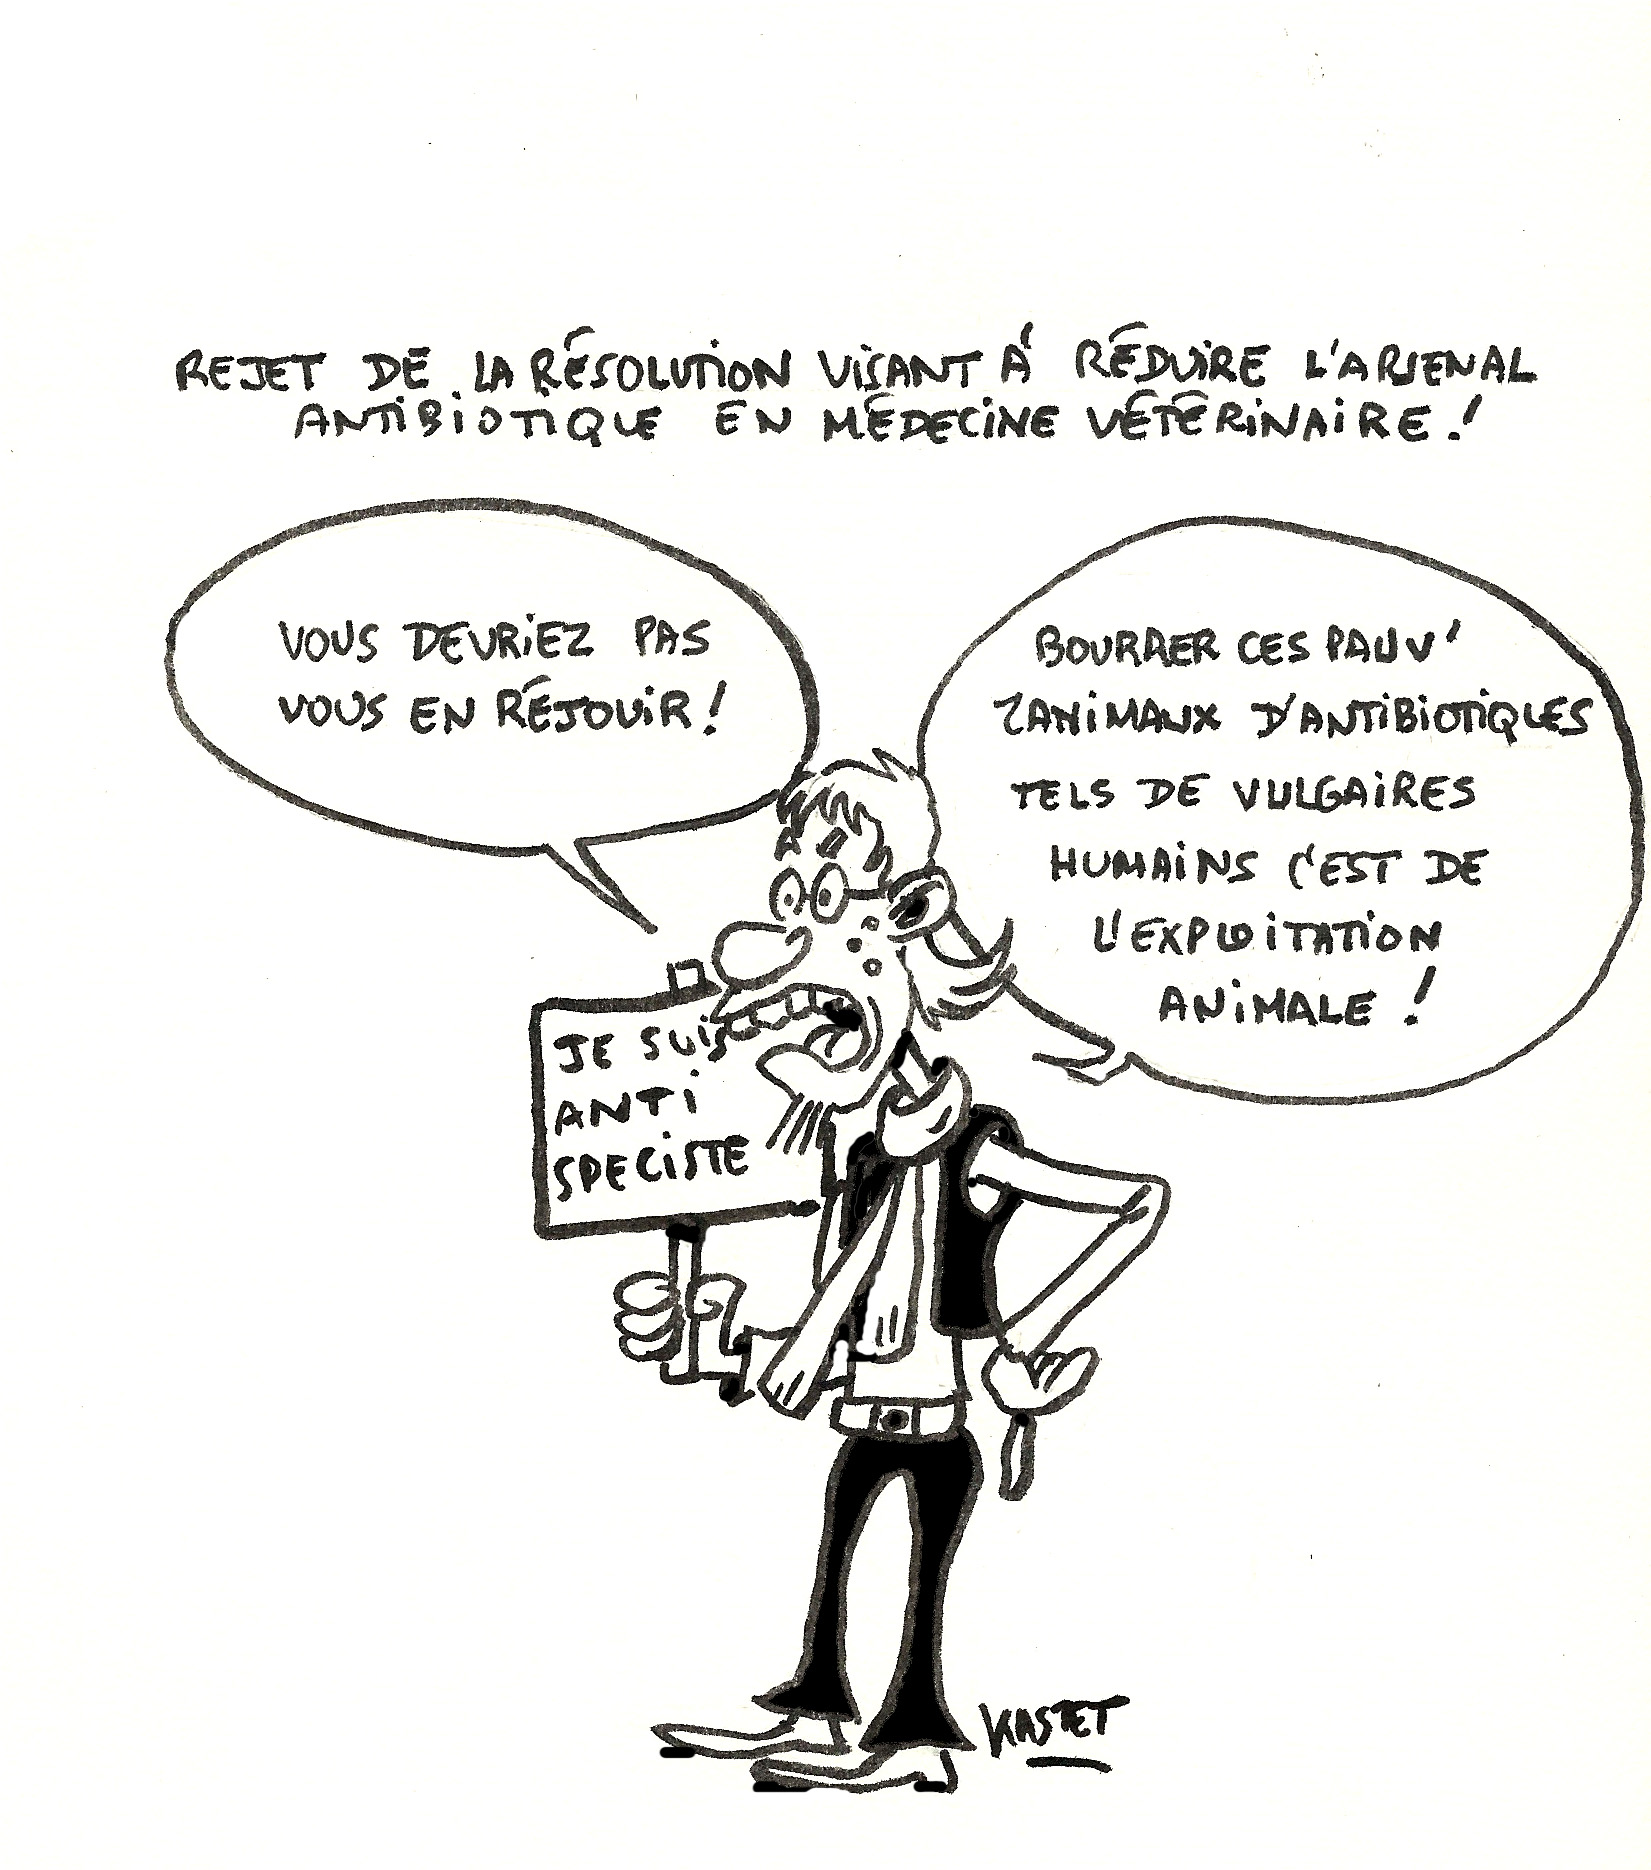 REJET DE LA RÉSOLUTION VISANT À RÉDUIRE L'ARSENAL
ANTIBIOTIQUE EN MÉDECINE VÉTÉRINAIRE !
VOUS DEVRIEZ PAS
VOUS EN RÉJOUIR !
BOURRER CES PAUV'
ZANIMAUX D'ANTIBIOTIQUES
TELS DE VULGAIRES
HUMAINS C'EST DE
L'EXPLOITATION
ANIMALE !
JE SUIS
ANTI
SPECISTE
KASTET